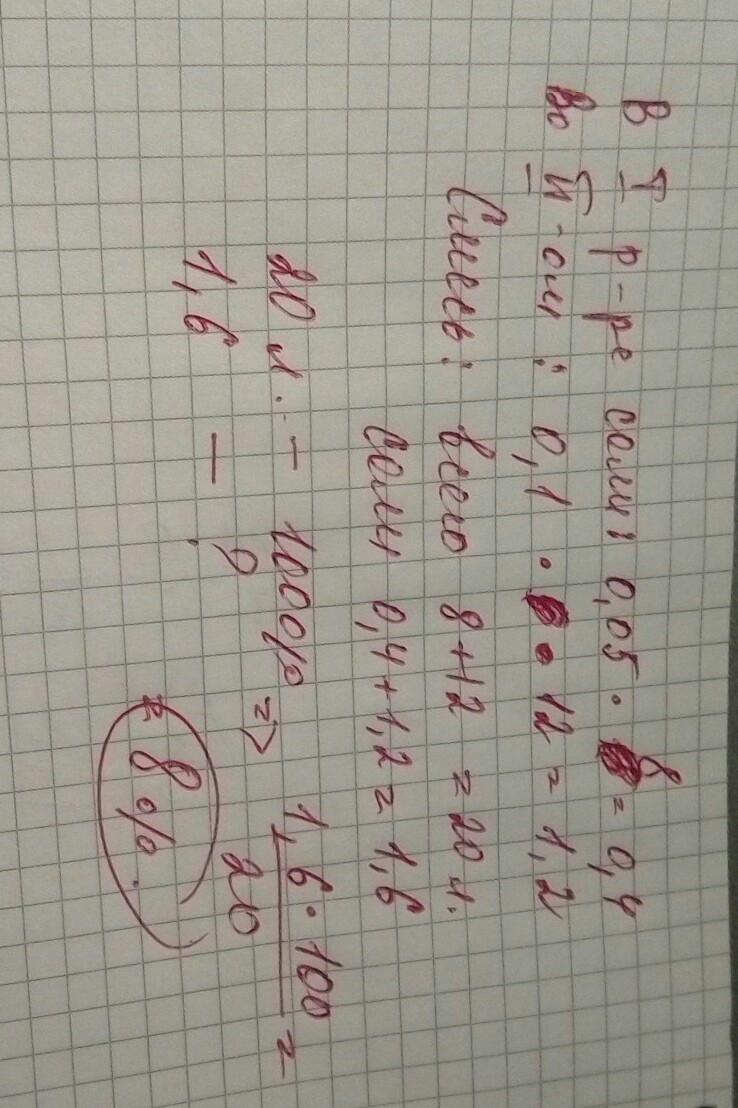 В I р-ре соли: 0,05 · 8 = 0,4
Во II-ом: 0,1 · 12 = 1,2
Смесь: всего 8+12 = 20 л.
соли 0,4+1,2 = 1,6
20 л. – 100% => 1,6·100 / 20 =
1,6 – ?
= 8%.